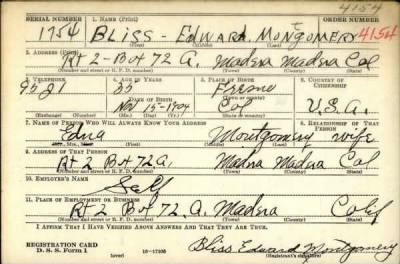 4154
SERIAL NUMBER 1. NAME (Print) ORDER NUMBER
1754 BLISS - EDWARD MONTGOMERY 4154
(First) (Middle) (Last)
2. ADDRESS (Print)
Rt 2 - Box 72 A. Madera Madera Cal
(Number and street or R. F. D. number) (Town) (County) (State)
3. TELEPHONE 4. AGE IN YEARS 5. PLACE OF BIRTH 6. COUNTRY OF CITIZENSHIP
35 Fresno
DATE OF BIRTH
Nov 15-1904 Cal U.S.A.
(Mo.) (Day) (Yr.) (State or country)
7. NAME OF PERSON WHO WILL ALWAYS KNOW YOUR ADDRESS 8. RELATIONSHIP OF THAT PERSON
Edna Montgomery wife
(Mr., Mrs., Miss) (First) (Middle) (Last)
9. ADDRESS OF THAT PERSON
Rt 2 Box 72A, Madera Madera Cal
(Number and street or R. F. D. number) (Town) (County) (State)
10. EMPLOYER'S NAME
Self
11. PLACE OF EMPLOYMENT OR BUSINESS
Rt 2 - Box 72, A. Madera Calif
(Number and street or R. F. D. number) (Town) (County) (State)
I AFFIRM THAT I HAVE VERIFIED ABOVE ANSWERS AND THAT THEY ARE TRUE.
REGISTRATION CARD
D. S. S. Form 1 (over) 16-17105 Bliss Edward Montgomery
(Registrant's signature)